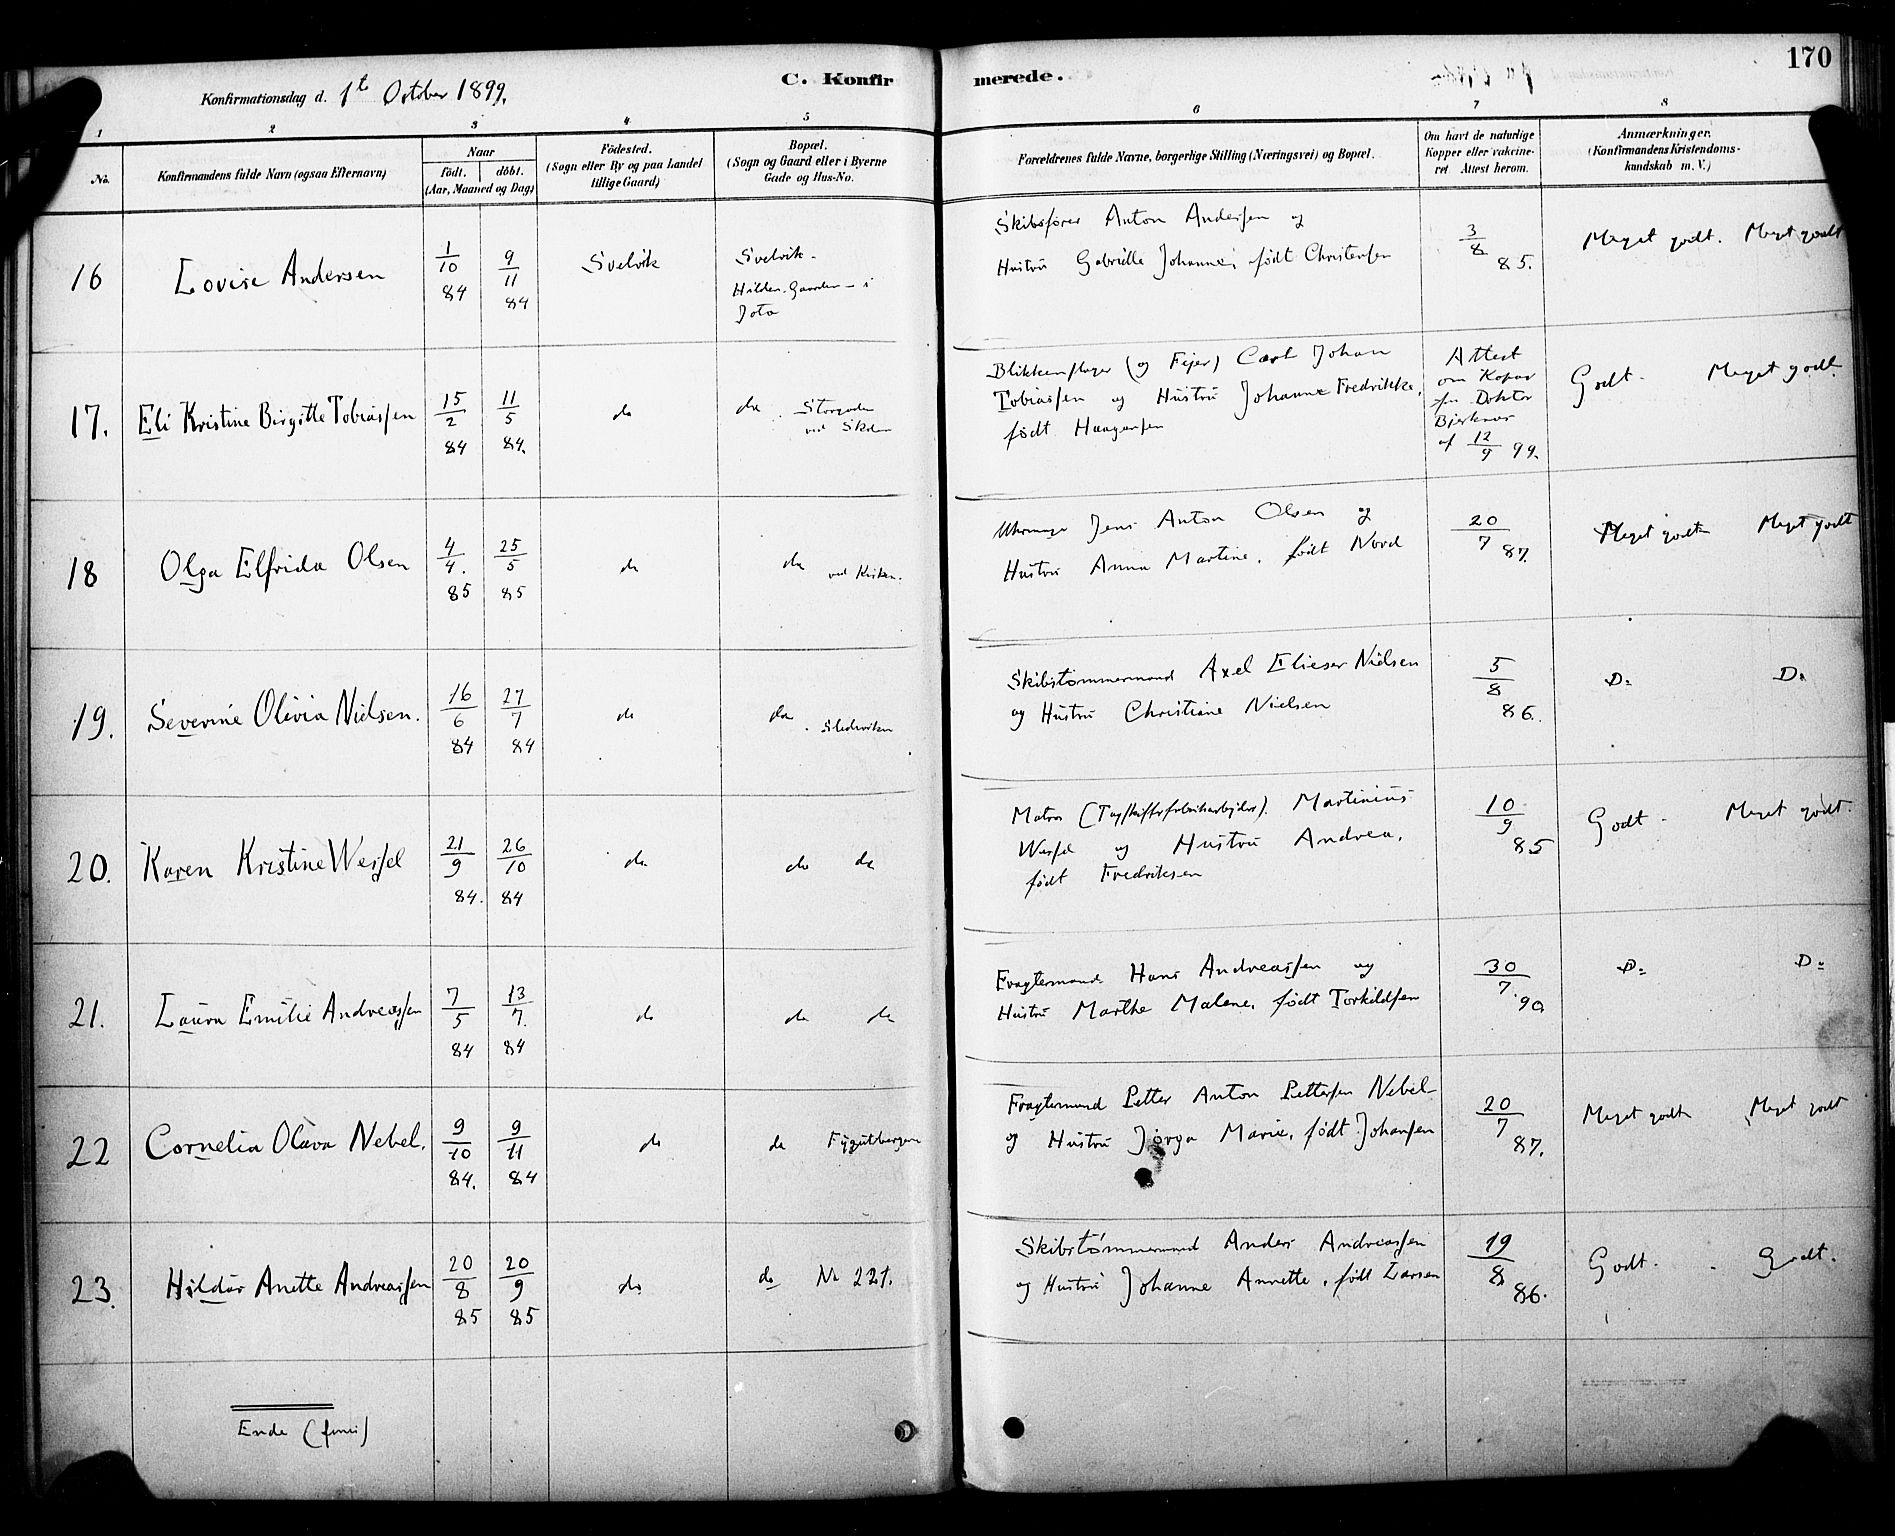 170
C. Konfirmerede.
Konfirmationsdag d. 1te October 1899.
1 2 3 4 5 6 7 8
No. Konfirmandens fulde Navn (ogsaa Efternavn) Naar født. døbt. (Aar, Maaned og Dag) Fødested. (Sogn eller By og paa Landet tillige Gaard) Bopæl. (Sogn og Gaard eller i Byerne Gade og Hus-No. Forældrenes fulde Navne, borgerlige Stilling (Næringsvei) og Bopæl. Om havt de naturlige Kopper eller vakcineret Attest herom. Anmærkninger. (Konfirmandens Kristendomskundskab m. V.)
16 Lovise Andersen 1/10 84 9/11 84 Svelvik Svelvik. Hilden. Gaarden - i
Skibsfører Anton Andersen og
Hustru Gabrielle Johanne, født Christensen
3/8 85. Meget godt. Meget godt
17. Eli Kristine Birgitte Tobiassen 15/2 84 11/5 84. do do. Storgaden
Blikkenslager (og Fejer) Carl Johan
Tobiassen og Hustru Johanne Fredrikke,
født Haagensen
Attest
om Kopar
fra Doktor
Bjerknes
af 12/9 99.
Godt. Meget godt.
18 Olga Elfrida Olsen 4/4. 85 25/5 85 do do ved Kirken.
Uhrmager Jens Anton Olsen og
Hustru Anna Martine, født Nord
20/7 87. Meget godt Meget godt
19. Severine Olivia Nielsen. 16/6 84 27/7 84 do do
Skibstømmermand Axel Elieser Nielsen
og Hustru Christiane Nielsen
5/8 86. Do Do
20. Karen Kristine Wessel 21/9 84. 26/10 84 do do do
Matros (Tagskifferfabrikarbejder). Martinius
Wessel og Hustru Andrea,
født Fredriksen
10/9 85 Godt. Meget godt.
21. Laura Emilie Andreassen 7/5 84 13/7. 84 do do do
Fragtemand Hans Andreassen og
Hustru Marthe Malene, født Torkildsen
30/7. 90. Do Do
22 Cornelia Olava Nebel. 9/10 84. 9/11 84 do do
Fragtemand Petter Anton Pettersen Nebel
og Hustru Jørga Marie, født Johansen
20/7 87. Meget godt Meget godt
23. Hildur Anette Andreassen 20/8 85 20/9 85 do do No 221.
Skibstømmermand Anders Andreassen
og Hustru Johanne Annette, født Larsen
19/8 86. Godt. Godt.
Ende (finis)